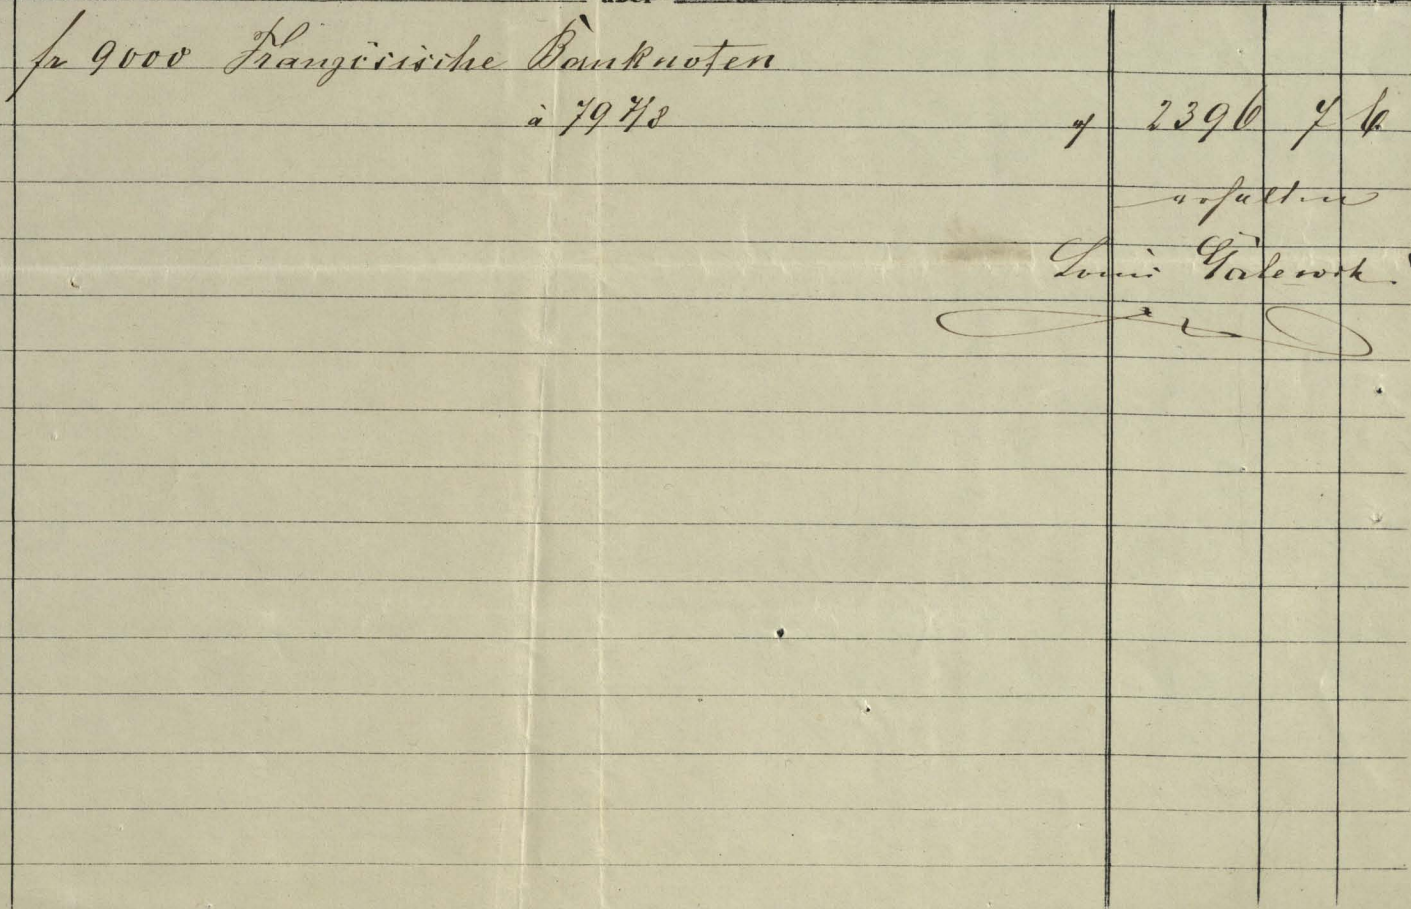 fr 9000 Französische Banknoten
à 79 7/8 2396 7 6
erhalten
Louis